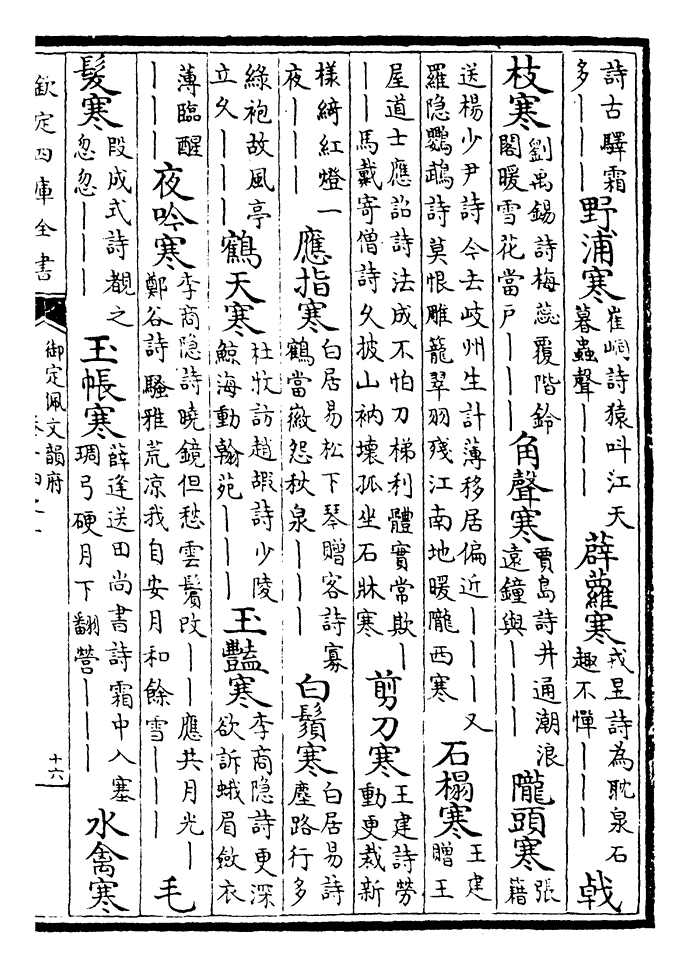 詩古驛霜
多｜｜｜
野浦寒
崔峒詩猿叫江天
暮蟲聲｜｜｜
薜蘿寒
戎昱詩為耽泉石
趣不憚｜｜｜
戟
枝寒
劉禹錫詩梅蕊覆階鈴
閣暖雪花當戶｜｜｜
角聲寒
賈島詩井通潮浪
遠鐘與｜｜｜
隴頭寒
張
籍
送楊少尹詩今去岐州生計薄移居偏近｜｜｜又
羅隐鸚鵡詩莫恨雕籠翠羽殘江南地暖隴西寒
石榻寒
王建
贈王
屋道士應詔詩法成不怕刀梯利體實常欺｜
｜｜馬戴寄僧詩久披山衲壞孤坐石牀寒
剪刀寒
王建詩勞
動更裁新
樣綺紅燈一
夜｜｜｜
應指寒
白居易松下琴贈客詩寡
鶴當徽怨秋泉｜｜｜
白鬚寒
白居易詩
塵路行多
綠袍故風亭
立久｜｜｜
鶴天寒
杜牧訪趙嘏詩少陵
鯨海動翰苑｜｜｜
玉豔寒
李商隐詩更深
欲訴蛾眉斂衣
薄臨醒
｜｜｜
夜吟寒
李商隐詩曉鏡但愁雲鬢改｜｜應共月光｜
鄭谷詩騷雅荒凉我自安月和餘雪｜｜｜
毛
髮寒
段成式詩覩之
忽忽｜｜｜
玉帳寒
薛逢送田尚書詩霜中入塞
琱弓硬月下翻營｜｜｜
水禽寒
欽定四庫全書
御定佩文韻府
十六